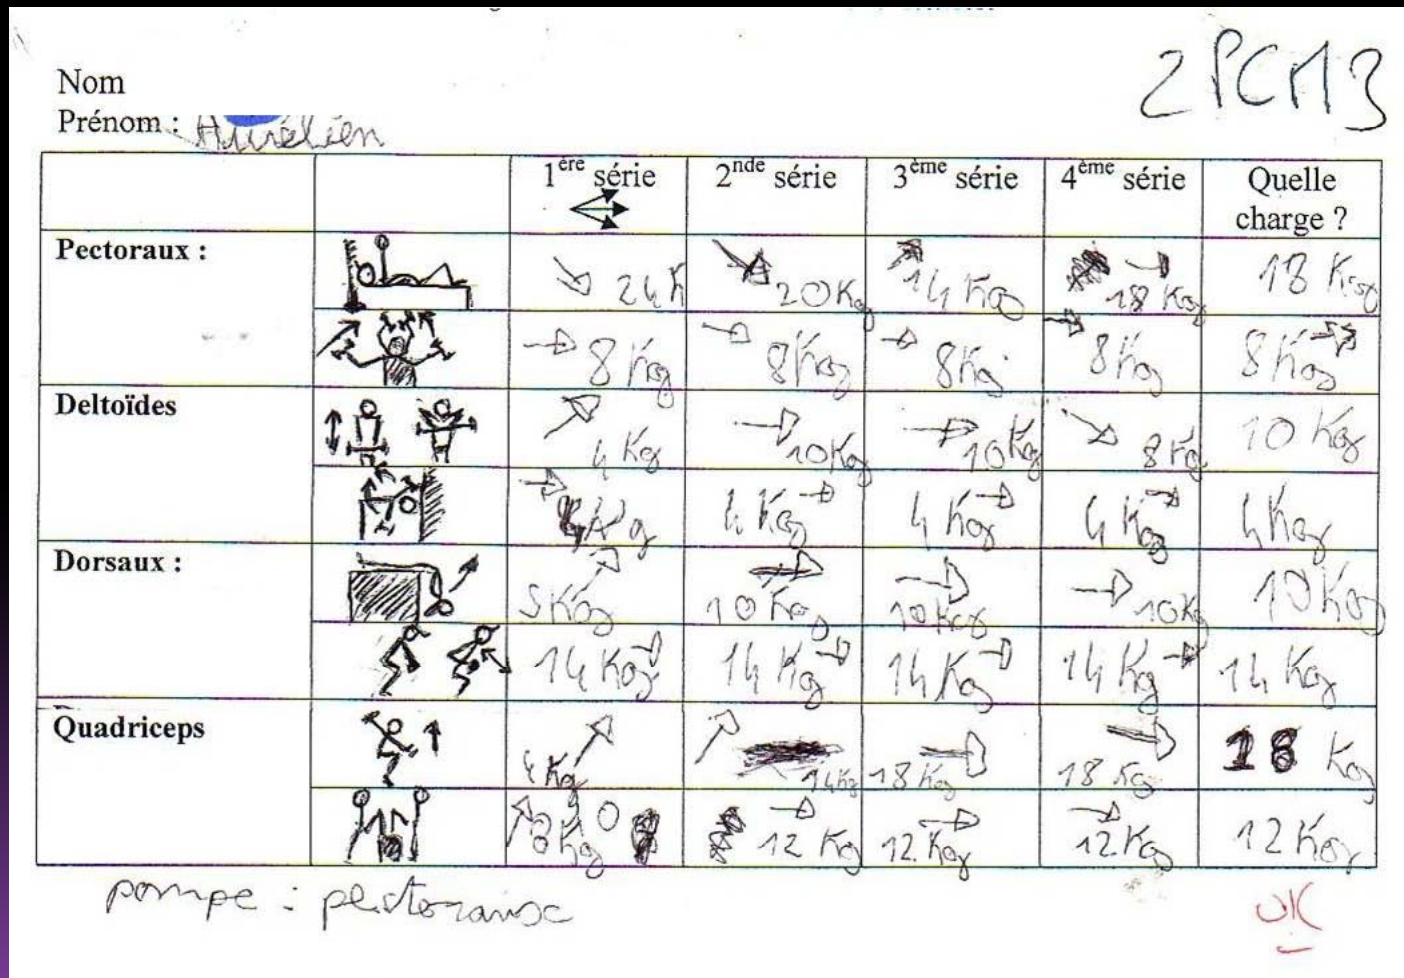 2PCM3
Nom
Prénom : Aurélien
1ère série 2nde série 3ème série 4ème série Quelle charge ?
Pectoraux :
24 K 20 Kg 14 Kg 18 Kg 18 Kg
8 Kg 8 Kg 8 Kg 8 Kg 8 Kg
Deltoïdes
4 Kg 10 Kg 10 Kg 8 Kg 10 Kg
4 Kg 4 Kg 4 Kg 4 Kg 4 Kg
Dorsaux :
5 Kg 10 Kg 10 Kg 10 Kg 10 Kg
14 Kg 14 Kg 14 Kg 14 Kg 14 Kg
Quadriceps
4 Kg 14 Kg 18 Kg 18 Kg 18 Kg
8 Kg 12 Kg 12 Kg 12 Kg 12 Kg
pompe : pectoraux
OK